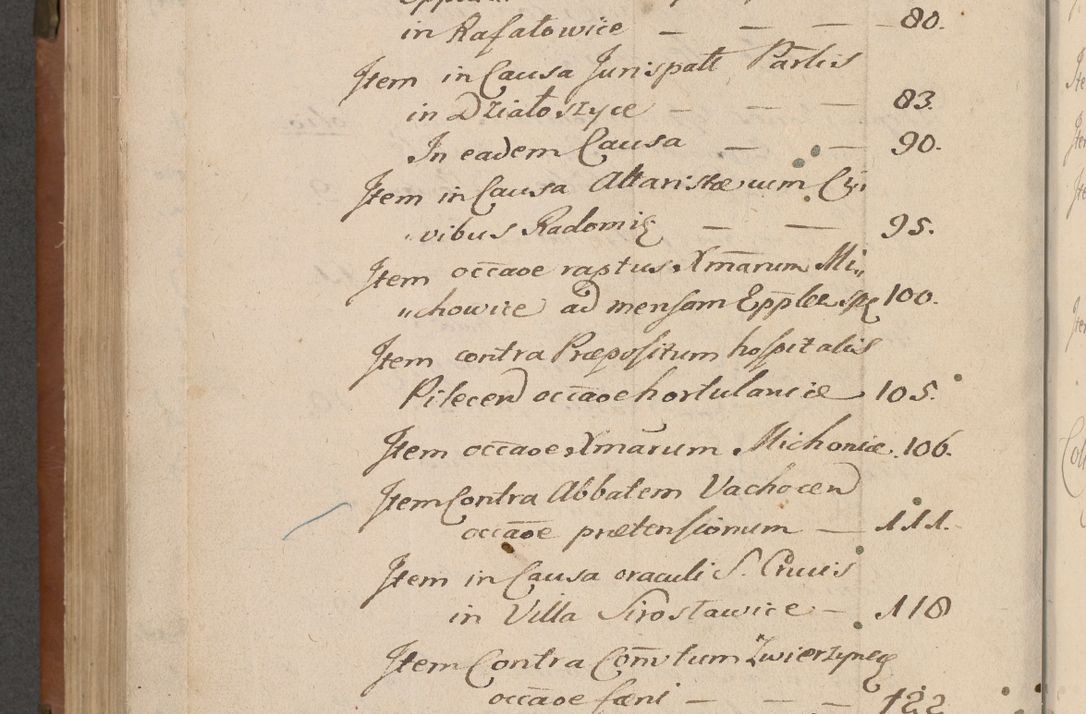 in Rafałowice — — — 80.
Item in Causa Jurispatt Partis
in Działoszyce — — — 83.
In eadem Causa — — 90.
Item in Causa Altaristæ cum Ci,,
,,vibus Radomię — — 95.
Item occaōe raptus Xmārum Mi,,
,,chowice ad mensam Epplēe spę 100.
Item contra Præpositum hospitalis
Pilecen occāoe hortulaniæ — 105.
Item occāoe Xmarum Michoniæ. 106.
Item Contra Abbatem Vachocen
occāoe prætensionum — 111.
Item in Causa oraculi S. Crucis
in Villa Sirosławice — 118
Item Contra Com̄tum Zwierzyneę
occāoe fæni — — — 122